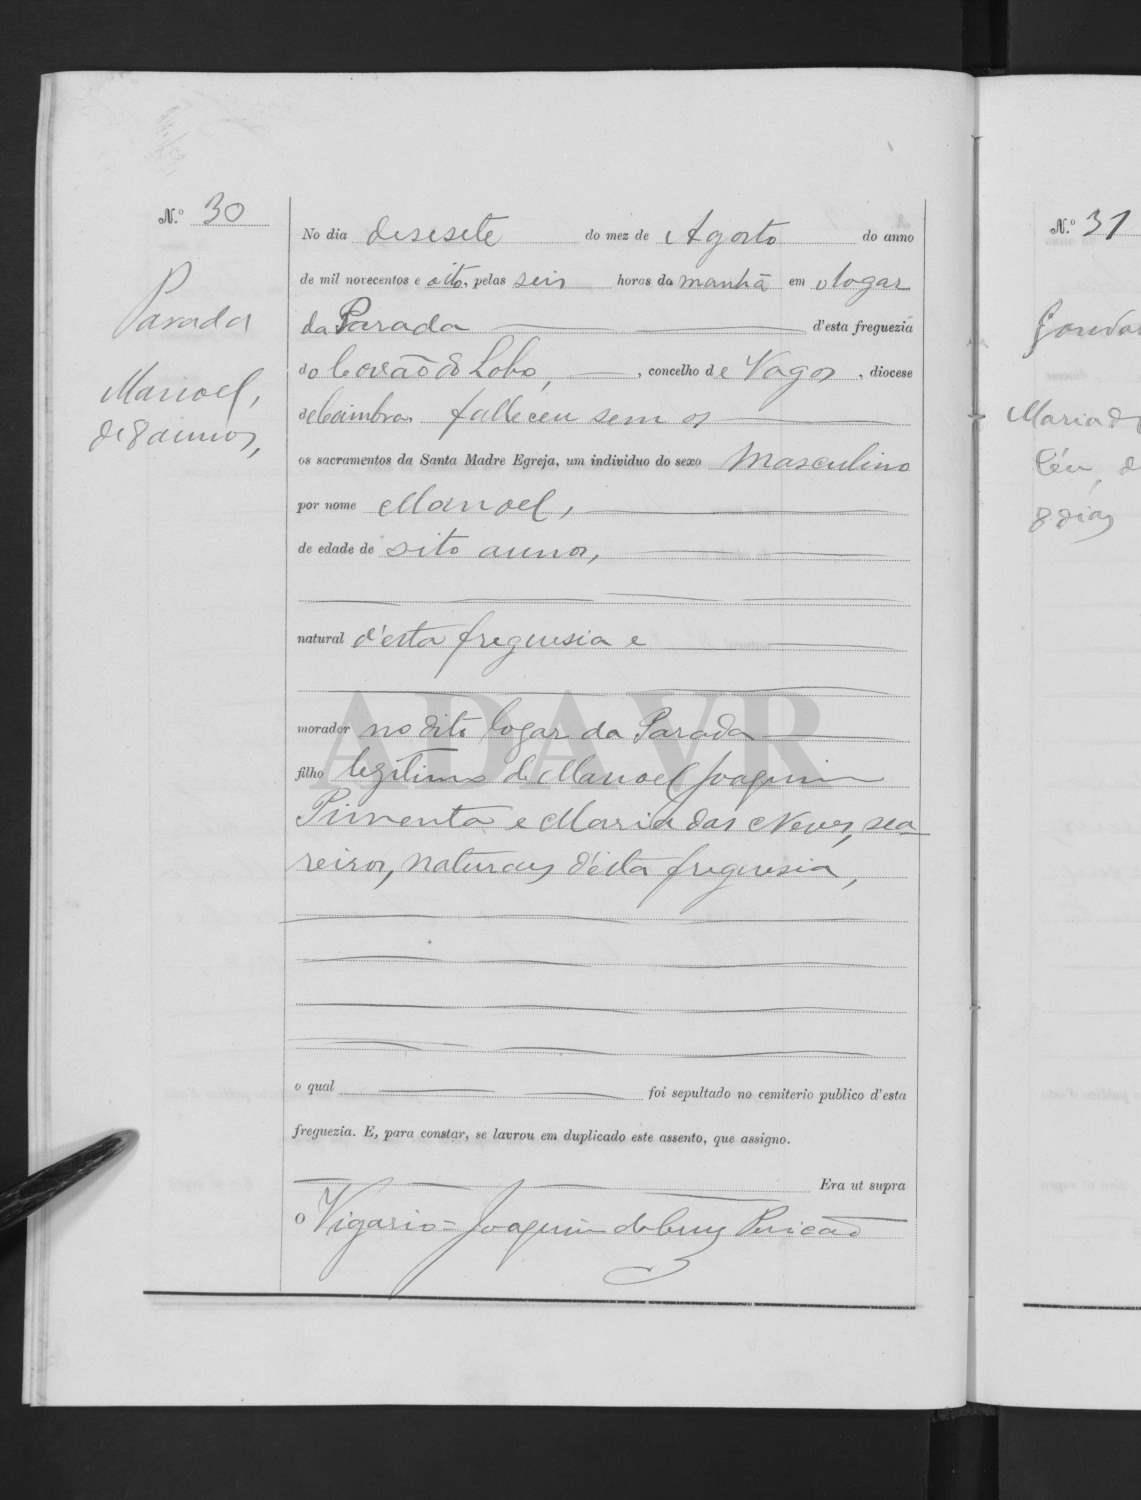 N.º 30
Parada
Manoel,
de 8 annos,
No dia desesete do mez de Agosto do anno
de mil novecentos e oito, pelas seis horas da manhã em o logar
da Parada d'esta freguezia
do Covão do Lobo, , concelho de Vagos , diocese
de Coimbra, falleceu sem os
os sacramentos da Santa Madre Egreja, um individuo do sexo Masculino
por nome Manoel,
de edade de oito annos,
natural d'esta freguesia e
ADAVR
morador no dito logar da Parada
filho legitimo de Manoel Joaquim
Pimenta e Maria das Neves, sea-
reiros, naturaes d'esta freguesia,
o qual foi sepultado no cemiterio publico d'esta
freguezia. E, para constar, se lavrou em duplicado este assento, que assigno.
Era ut supra
O Vigario = Joaquim da Cruz Pericão
N.º 31
Maria do
Céu, d
8 dias